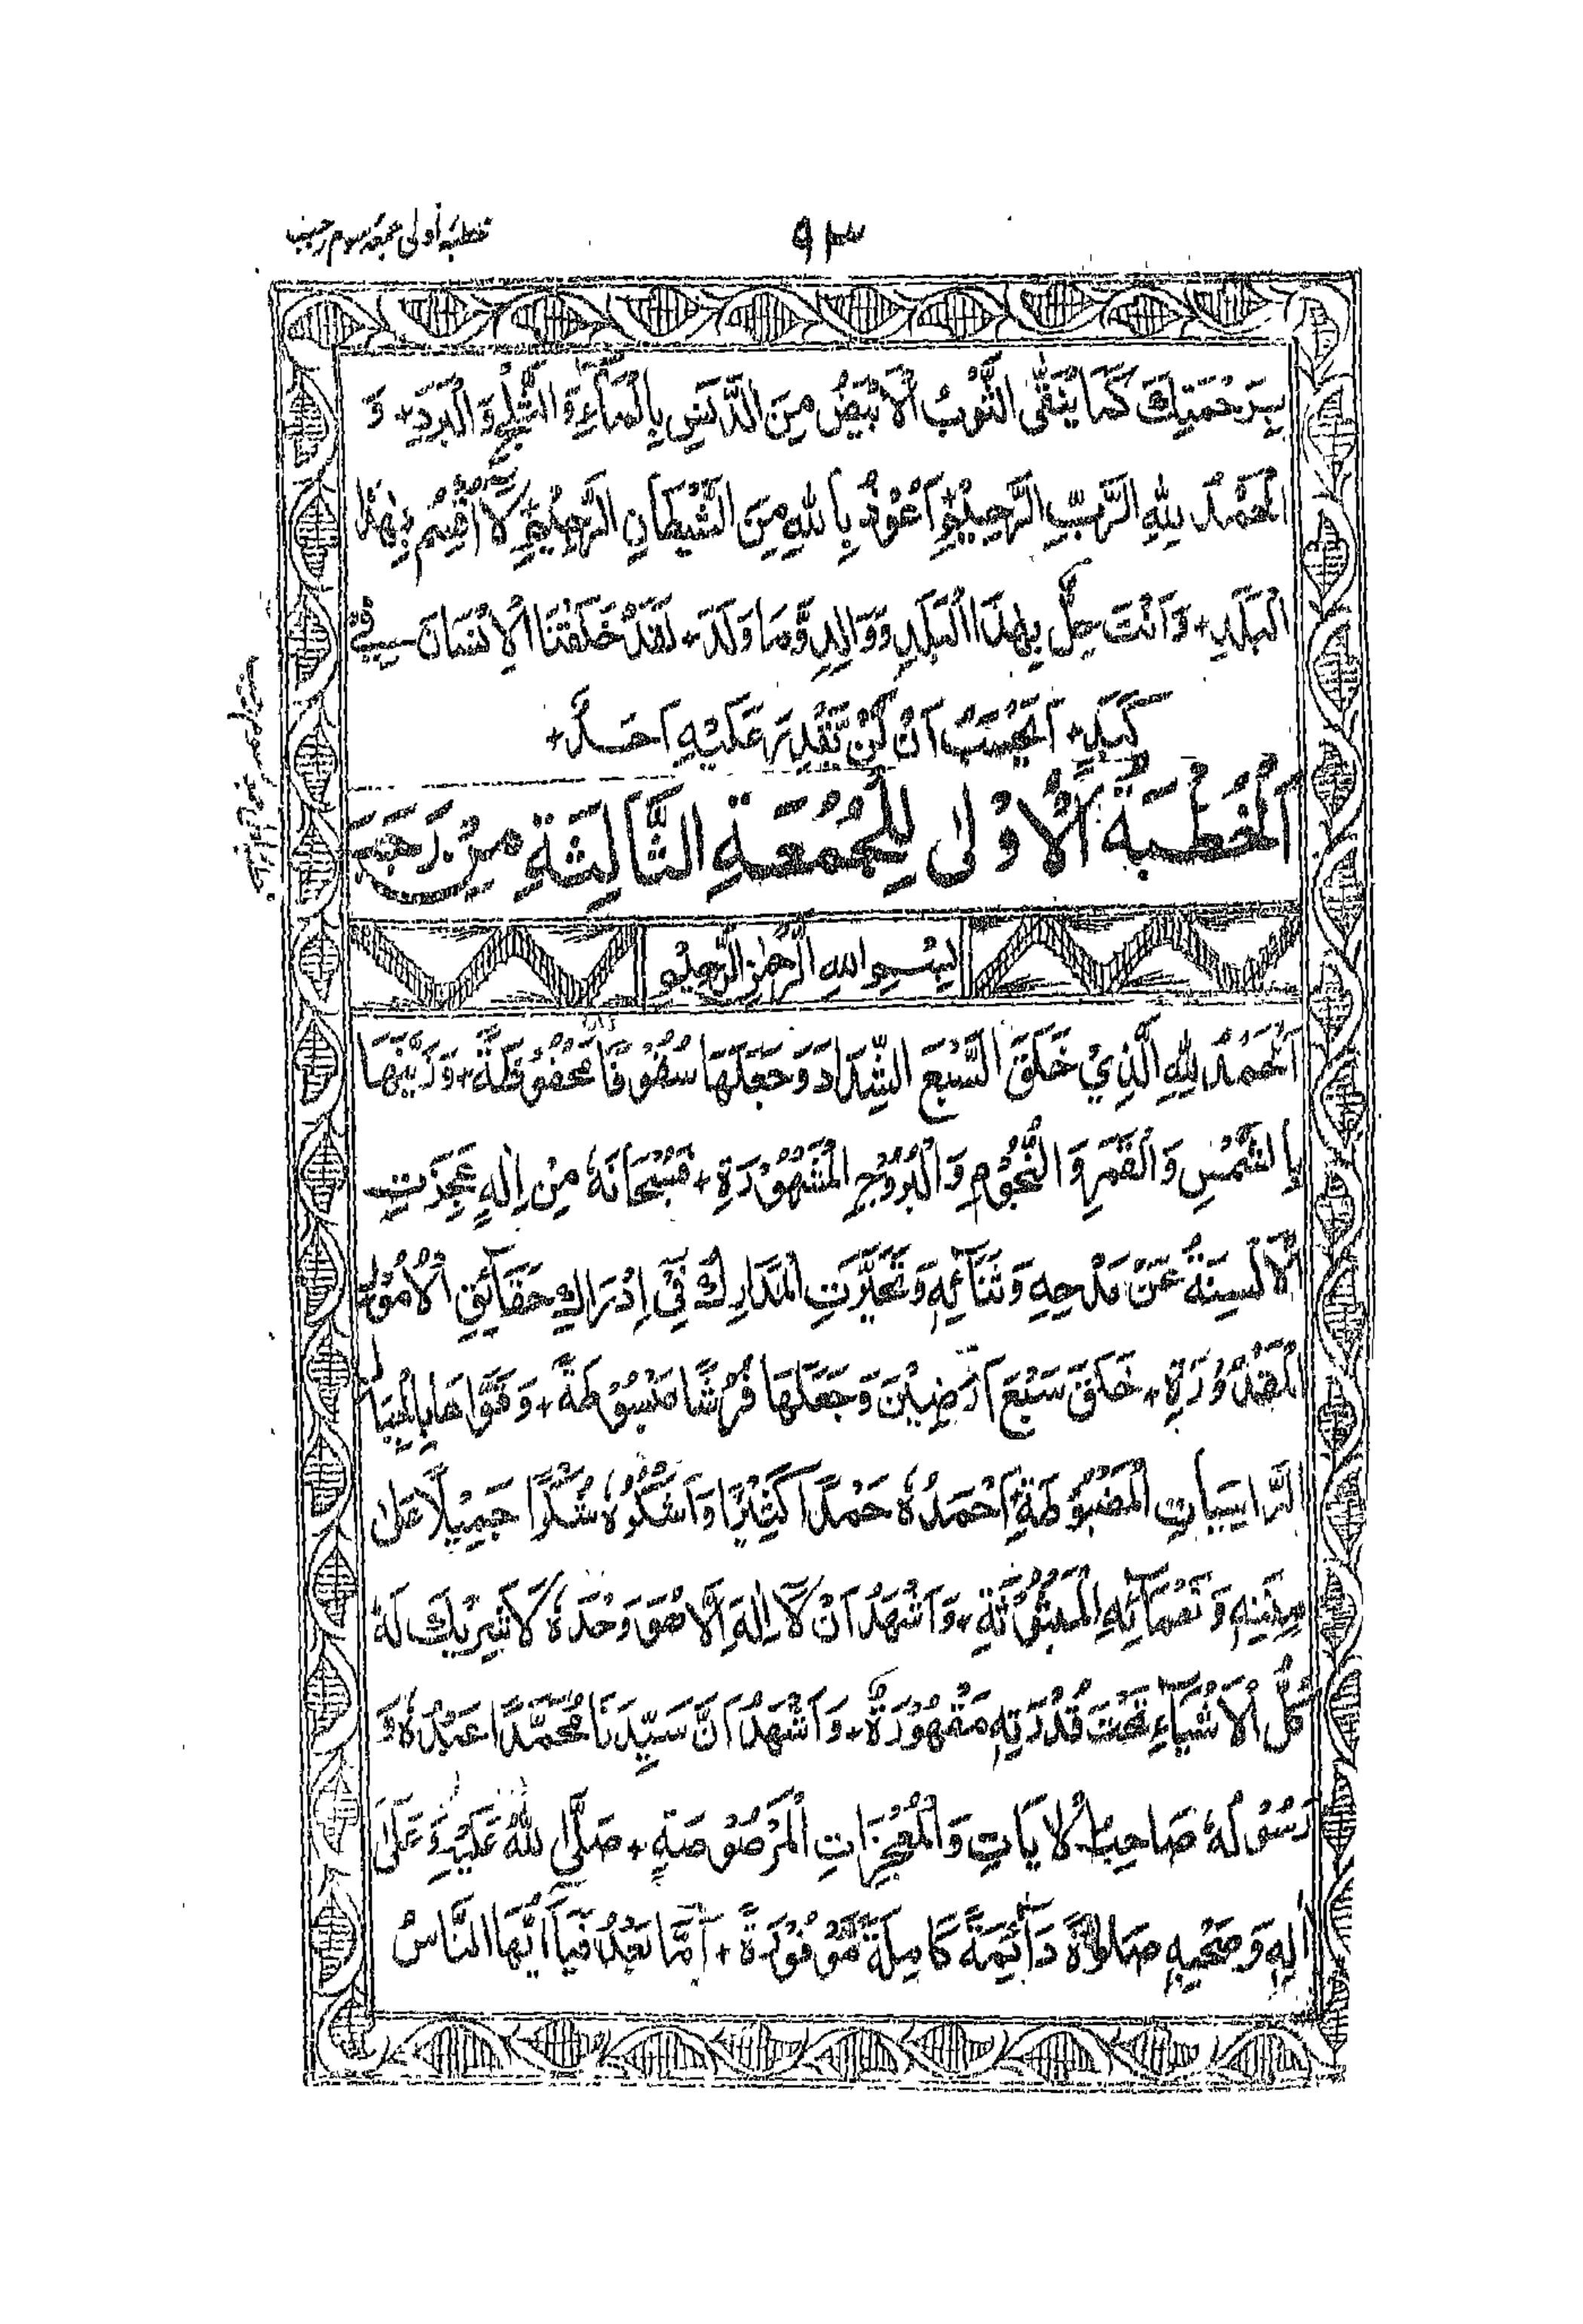 خطبۂ أولی جمعۂ سوم رجب
٩٣
بِرَحْمَتِكَ كَمَا يُنَقَّى الثَّوْبُ الْاَبْيَضُ مِنَ الدَّنَسِ بِالْمَآءِ وَ الثَّلْجِ وَ الْبَرَدِ + وَ
الْحَمْدُ لِلّٰهِ الرَّبِّ الرَّحِيْمِ + اَعُوْذُ بِاللّٰهِ مِنَ الشَّيْطَانِ الرَّجِيْمِ + لَآ اُقْسِمُ بِهٰذَا
الْبَلَدِ + وَ اَنْتَ حِلٌّ بِهٰذَا الْبَلَدِ وَ وَالِدٍ وَّ مَا وَلَدَ + لَقَدْ خَلَقْنَا الْاِنْسَانَ فِيْ
كَبَدٍ + اَيَحْسَبُ اَنْ لَّنْ يَّقْدِرَ عَلَيْهِ اَحَدٌ +
اَلْخُطْبَةُ الْاُوْلٰى لِلْجُمُعَةِ الثَّالِثَةِ مِنْ رَجَبَ
بِسْمِ اللهِ الرَّحْمٰنِ الرَّحِيْمِ
اَلْحَمْدُ لِلّٰهِ الَّذِيْ خَلَقَ السَّبْعَ الشِّدَادَ وَ جَعَلَهَا سُقُوْفًا مَحْفُوْظَةً + وَ زَيَّنَهَا
بِالشَّمْسِ وَ الْقَمَرِ وَ النُّجُوْمِ وَ الْبُرُوْجِ الْمَشْهُوْرَةِ + فَسُبْحَانَهٗ مِنْ اِلٰهٍ عَجَزَتِ
الْاَلْسِنَةُ عَنْ مَدْحِهٖ وَ ثَنَآئِهٖ وَ تَحَيَّرَتِ الْمَدَارِكُ فِيْ اِدْرَاكِ حَقَآئِقِ الْاُمُوْرِ
خَلَقَ سَبْعَ اَرَضِيْنَ وَ جَعَلَهَا فُرُشًا مَبْسُوْطَةً + وَ قَوَّاهَا بِالْجِبَالِ
الرَّاسِيَاتِ الْمَضْبُوْطَةِ + اَحْمَدُهٗ حَمْدًا كَثِيْرًا وَ اَشْكُرُهٗ شُكْرًا جَمِيْلًا عَلٰى
مِنَنِهٖ وَ نَعْمَآئِهِ الْمَبْثُوْثَةِ + وَ اَشْهَدُ اَنْ لَّآ اِلٰهَ اِلَّا هُوَ وَحْدَهٗ لَا شَرِيْكَ لَهٗ
كُلُّ الْاَشْيَآءِ تَحْتَ قُدْرَتِهٖ مَقْهُوْرَةٌ + وَ اَشْهَدُ اَنَّ سَيِّدَنَا مُحَمَّدًا عَبْدُهٗ وَ
رَسُوْلُهٗ صَاحِبُ الْاٰيَاتِ وَ الْمُعْجِزَاتِ الْمَرْصُوْصَةِ + صَلَّى اللّٰهُ عَلَيْهِ وَ عَلٰى
اٰلِهٖ وَ صَحْبِهٖ صَلٰوةً دَآئِمَةً كَامِلَةً مَّوْفُوْرَةً + اَمَّا بَعْدُ فَيَآ اَيُّهَا النَّاسُ